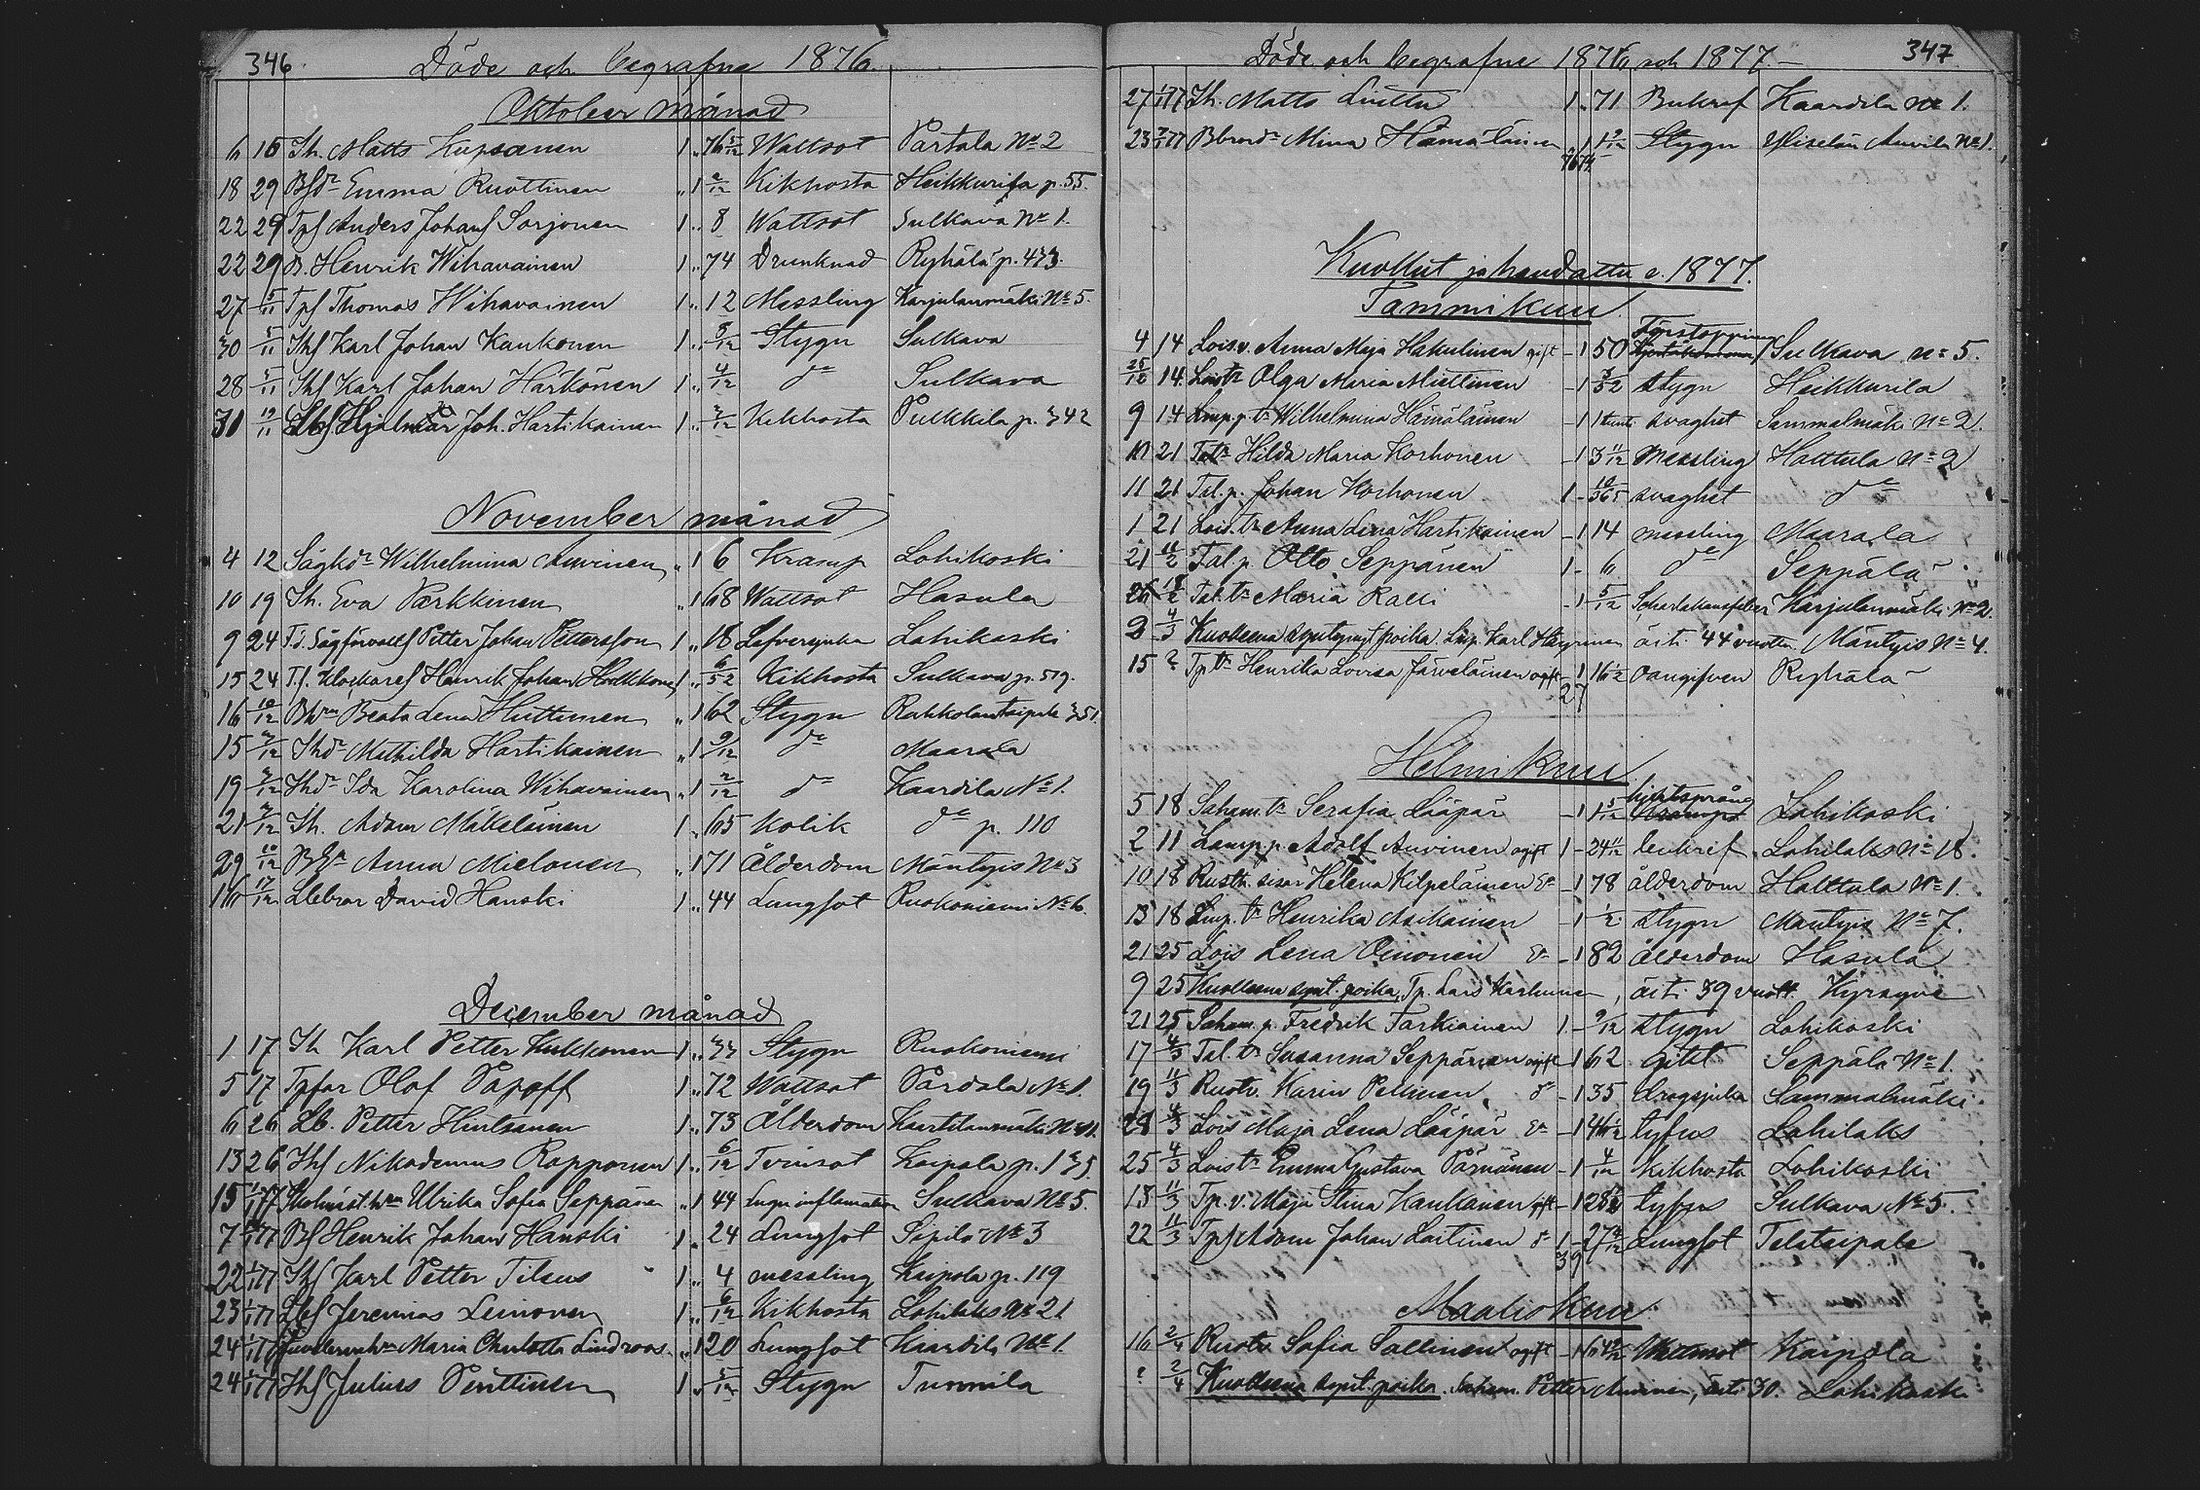 346
Döde och begrafne 1876.
Oktober månad
6 15 Ih. Matts Kupsanen 1 „ 76 5/12 Wattsot Partala No 2
18 29 Bfdr Emma Ruottinen „ 1 2/12 Kikhosta Heikkurila p. 55.
22 29 Tpf Anders Johanf Sorjonen 1 „ 8 Wattsot Sulkava No 1.
22 29 B. Henrik Wihavainen 1 „ 74 Drunknad Ryhälä p. 433.
27 5/11 Tpf Thomas Wihavainen 1 „ 12 Messling Karjulanmäki No 5.
30 5/11 Ihf Karl Johan Kaukonen 1 „ 8/12 Stygn Sulkava
28 5/11 Ihf Karl Johan Härkönen 1 „ 4/12 do Sulkava
31 19/11 Lbf Hjalmar Joh. Hartikainen 1 „ 3/12 Kikhosta Pulkkila p. 342
November månad
4 12 Sågkdr Wilhelmina Auvinen „ 1 6 Kramp Lohikoski
10 19 Ih. Eva Parkkinen „ 1 68 Wattsot Hasula
9 24 Fd. Sågförvaltf Petter Johan Pettersson 1 „ 18 Lefversjuka Lohikoski
15 24 T.f. Klockaref Henrik Johan Holkkonen 1 „ 6/52 Kikhosta Sulkava p. 519.
16 10/12 Bhrn Beata Lena Huttunen „ 1 62 Stygn Rahkolantaipale 351.
15 3/12 Ihdr Mathilda Hartikainen „ 1 9/12 do Maarala
19 3/12 Ihdr Ida Karolina Wihavainen „ 1 2/12 do Kaardila No 1.
21 3/12 Ih. Adam Mäkeläinen 1 „ 65 Kolik do p. 110
29 10/12 Anna Mielonen „ 1 71 Ålderdom Mäntyis No 3
16 17/12 Lbbror David Hanski 1 „ 44 Lungsot Ruokoniemi No 6.
December månad
1 17 Ih Karl Petter Kukkonen 1 „ 33 Stygn Ruokoniemi
5 17 Tpfar Olof Papoff 1 „ 72 Wattsot Pårdala No 1.
6 26 Lb. Petter Hirtsanen 1 „ 73 Ålderdom
13 26 Ihf Nikodemus Rapponen 1 „ 6/12 Tvinsot Kaipola p. 135
15 1/1 77 Ulrika Sofia Seppänen „ 1 44 Lunginflamation Sulkava No 5.
7 77 Bf Henrik Johan Hanski 1 „ 24 Lungsot Sipilä No 3
22 1/1 77 Ihf Karl Petter Tilaus 1 „ 4 messling Kaipola p. 119
23 1/1 77 Lbf Jeremias Leinonen 1 „ 6/12 Kikhosta Lohilaks No 21
24 1/1 77 Maria Charlotta Lindroos „ 1 20 Lungsot Kaardila No 1.
24 1/1 77 Ihf Julius Penttinen 1 „ 5/12 Stygn Tunnila
347
Döde och begrafne 1876 och 1877
27 1/1 77 Ih. Matts Luttu 1 „ 71 Bukref Kaardila No 1.
23 7/1 77 Mina Hämäläinen „ 1 1 9/12 Stygn Auvila No 1.
Kuollut ja haudattu v. 1877.
Tammikuu.
4 14 Lois v. Anna Maja Hakulinen gift – 1 50 Förstoppning Sulkava No 5.
25/12 14 Lois tr Olga Maria Miettinen – 1 3/52 stygn Heikkurila
9 14 Lmp. p tr Wilhelmina Hämäläinen – 1 svaghet Sammalmäki No 2.
10 21 Tal tr Hilda Maria Korhonen – 1 3 11/12 messling Halttula No 2
11 21 Tal. p. Johan Korhonen 1 – 10/365 svaghet do
1 21 Lois. tr Anna Lena Hartikainen – 1 14 messling Maarala
21 11/2 Tal p. Otto Seppänen 1 – 6 do Seppälä
26 18/2 Tal. tr Maria Ralli – 1 5/12 Scharlakansfeber Karjulanmäki No 2.
2 4/3 Kuolleena syntynyt poika. Lmp. Karl Häyrinen äiti 44 vuotta Mäntyis No 4.
15 ? Tp tr Henrika Lovisa Järveläinen ogift – 1 16 1/2 oangifven Ryhälä
27
Helmikuu.
5 18 Saham. tr Serafia Lääpär – 1 1 5/12 hjertsprång Lohikoski
2 11 Lamp p Adolf Auvinen ogift 1 – 24 1/2 benkref Lohilaks No 18.
10 18 Rustn. sisar Helena Kilpeläinen E – 1 78 ålderdom Halttula No 1.
13 18 Lmp. tr Henrika Asikainen – 1 1/2 stygn Mäntyis No 7.
21 25 Lois Lena Oinonen E – 1 82 ålderdom Hasula
9 25 Kuolleena synt. poika, Tp. Lars Karhunen, äiti 39 vuott. Kyrsyvä
21 25 Saham. p. Fredrik Tarkiainen 1 – 9/12 stygn Lohikoski
17 4/3 Tal. tr Susanna Seppänen ogift – 1 62 gikt Seppälä No 1.
19 11/3 Rustv. Karin Pellinen do – 1 35 Sammalmäki
28 4/3 Lois Maja Lena Lääpär E – 1 46 1/2 tyfus Lohilaks
25 4/3 Lois tr Emma Gustava Pärnänen – 1 4/12 kikhosta Lohikoski
13 11/3 Tp. v. Maja Stina Kaukanen gift – 1 28 tyfus Sulkava No 5.
22 11/3 Tpf Adam Johan Laitinen do 1 – 27 2/12 Lungsot Telataipale
39
Maaliskuu.
16 2/4 Rustv Sofia Sallinen ogift – 1 Wattusot Kaipola
? 2/4 Kuolleena synt. poika. Saham. Petter Auvinen, äiti 30. Lohikoski